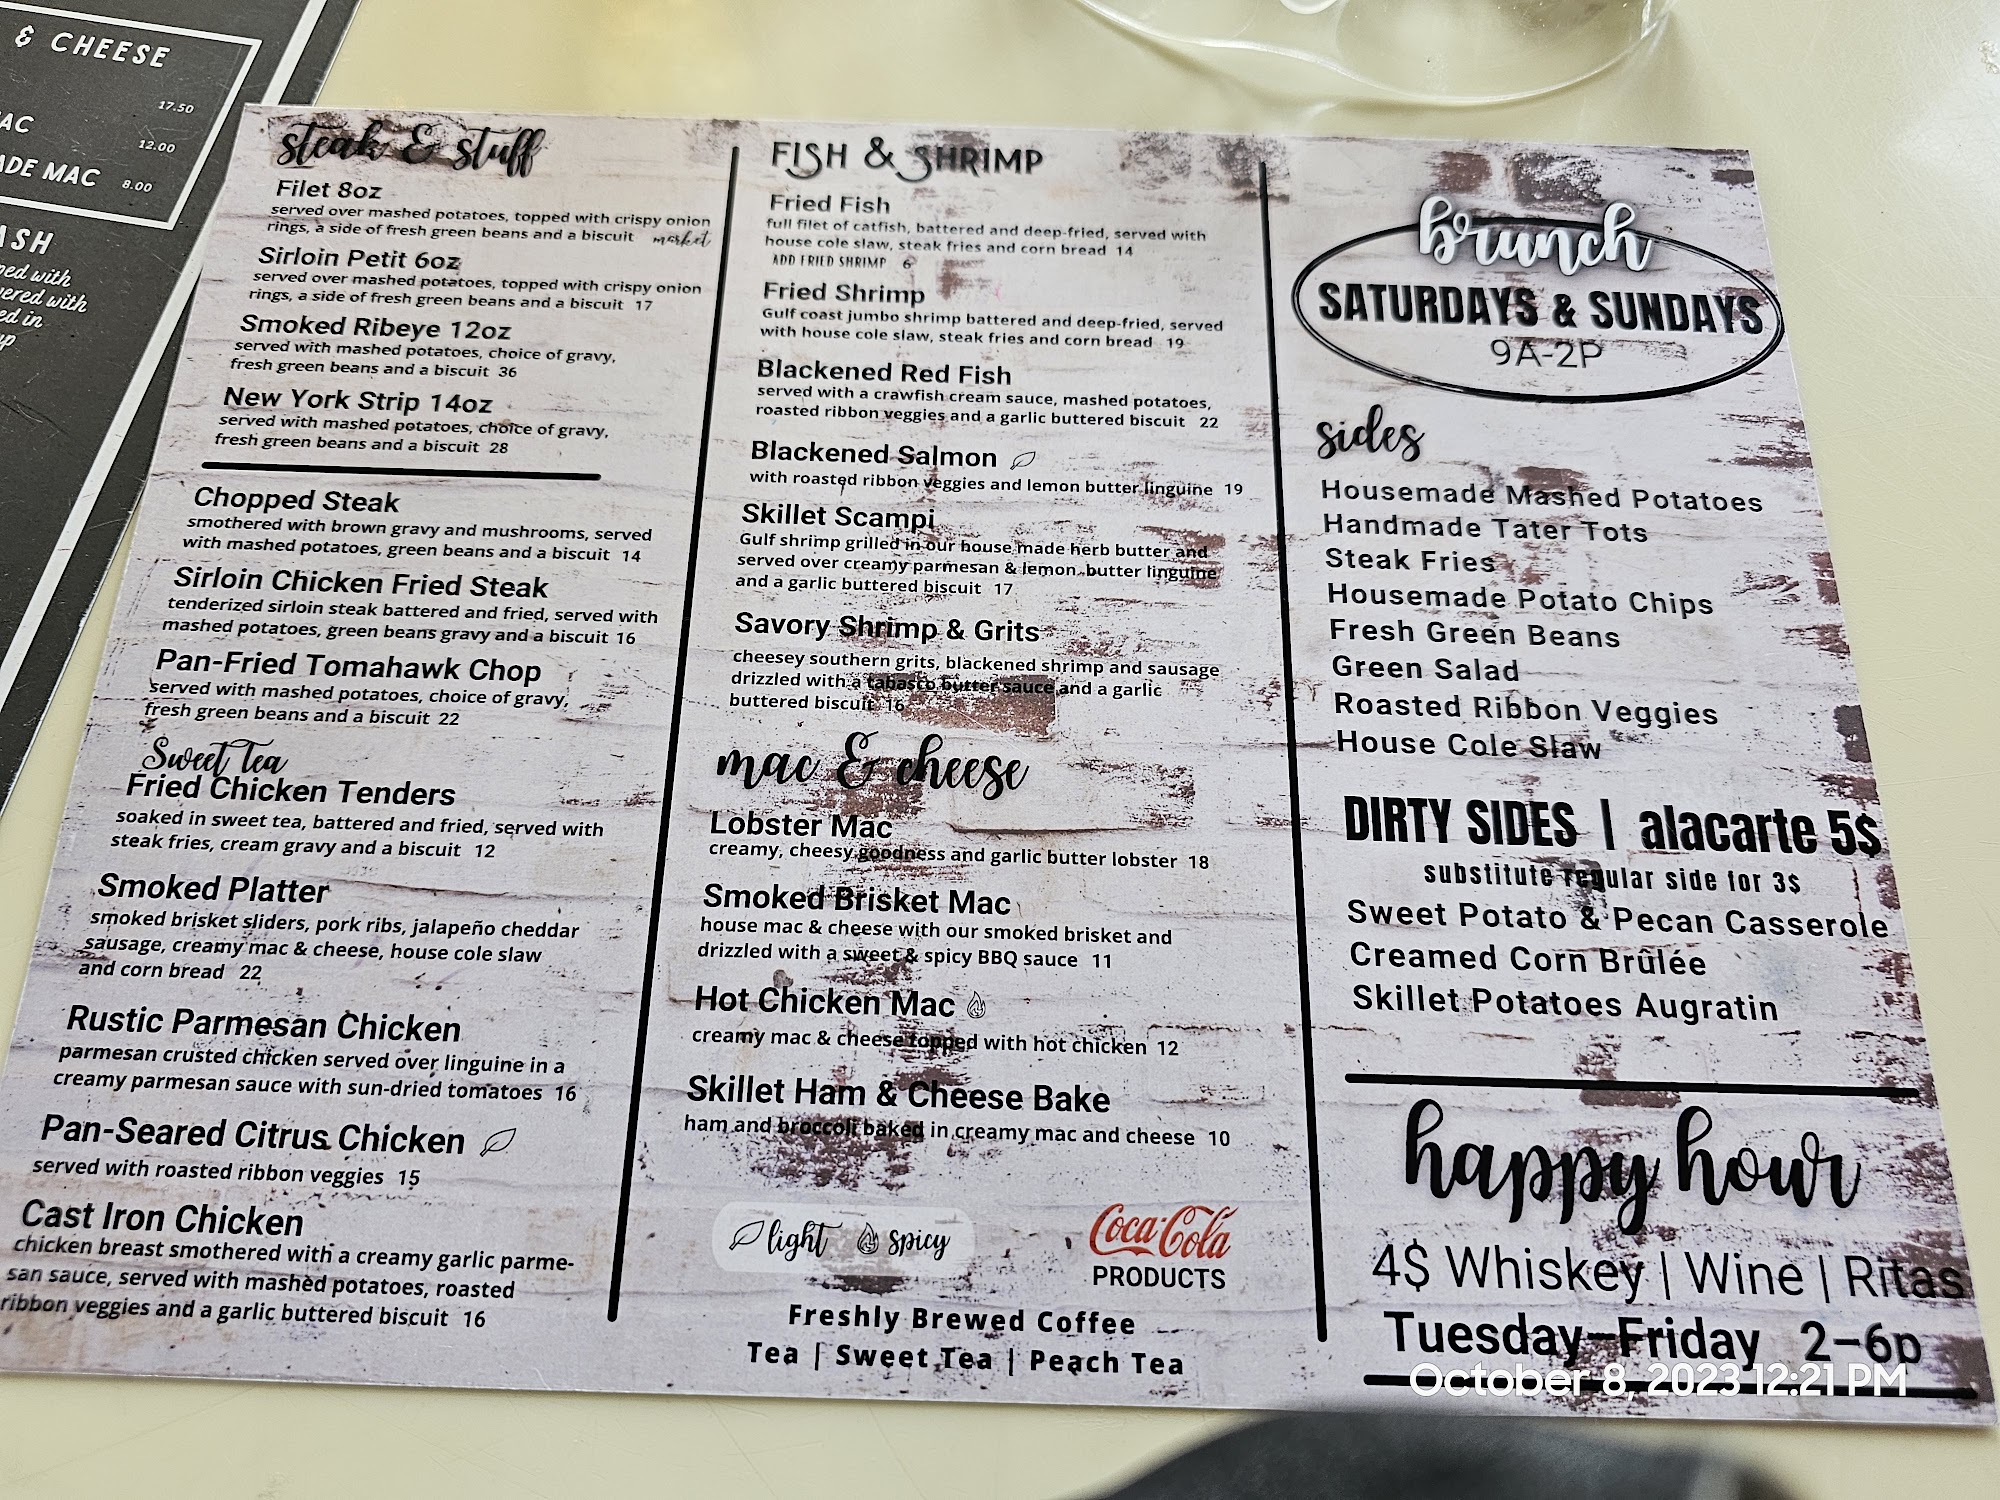 & CHEESE
17.50
AC
12.00
ADE MAC 8.00
ASH
ped with
vered with
ed in
up
steak & stuff
Filet 8oz
served over mashed potatoes, topped with crispy onion
rings, a side of fresh green beans and a biscuit market
Sirloin Petit 6oz
served over mashed potatoes, topped with crispy onion
rings, a side of fresh green beans and a biscuit 17
Smoked Ribeye 12oz
served with mashed potatoes, choice of gravy,
fresh green beans and a biscuit 36
New York Strip 14oz
served with mashed potatoes, choice of gravy,
fresh green beans and a biscuit 28
Chopped Steak
smothered with brown gravy and mushrooms, served
with mashed potatoes, green beans and a biscuit 14
Sirloin Chicken Fried Steak
tenderized sirloin steak battered and fried, served with
mashed potatoes, green beans gravy and a biscuit 16
Pan-Fried Tomahawk Chop
served with mashed potatoes, choice of gravy,
fresh green beans and a biscuit 22
Sweet Tea
Fried Chicken Tenders
soaked in sweet tea, battered and fried, served with
steak fries, cream gravy and a biscuit 12
Smoked Platter
smoked brisket sliders, pork ribs, jalapeño cheddar
sausage, creamy mac & cheese, house cole slaw
and corn bread 22
Rustic Parmesan Chicken
parmesan crusted chicken served over linguine in a
creamy parmesan sauce with sun-dried tomatoes 16
Pan-Seared Citrus Chicken
served with roasted ribbon veggies 15
Cast Iron Chicken
chicken breast smothered with a creamy garlic parme-
san sauce, served with mashed potatoes, roasted
ribbon veggies and a garlic buttered biscuit 16
FISH & SHRIMP
Fried Fish
full filet of catfish, battered and deep-fried, served with
house cole slaw, steak fries and corn bread 14
ADD FRIED SHRIMP 6
Fried Shrimp
Gulf coast jumbo shrimp battered and deep-fried, served
with house cole slaw, steak fries and corn bread 19
Blackened Red Fish
served with a crawfish cream sauce, mashed potatoes,
roasted ribbon veggies and a garlic buttered biscuit 22
Blackened Salmon
with roasted ribbon veggies and lemon butter linguine 19
Skillet Scampi
Gulf shrimp grilled in our house made herb butter and
served over creamy parmesan & lemon butter linguine
and a garlic buttered biscuit 17
Savory Shrimp & Grits
cheesey southern grits, blackened shrimp and sausage
drizzled with a tabasco butter sauce and a garlic
buttered biscuit 16
mac & cheese
Lobster Mac
creamy, cheesy goodness and garlic butter lobster 18
Smoked Brisket Mac
house mac & cheese with our smoked brisket and
drizzled with a sweet & spicy BBQ sauce 11
Hot Chicken Mac
creamy mac & cheese topped with hot chicken 12
Skillet Ham & Cheese Bake
ham and broccoli baked in creamy mac and cheese 10
light spicy
Coca-Cola
PRODUCTS
Freshly Brewed Coffee
Tea | Sweet Tea | Peach Tea
brunch
SATURDAYS & SUNDAYS
9A-2P
sides
Housemade Mashed Potatoes
Handmade Tater Tots
Steak Fries
Housemade Potato Chips
Fresh Green Beans
Green Salad
Roasted Ribbon Veggies
House Cole Slaw
DIRTY SIDES | alacarte 5$
substitute regular side for 3$
Sweet Potato & Pecan Casserole
Creamed Corn Brûlée
Skillet Potatoes Augratin
happy hour
4$ Whiskey | Wine | Ritas
Tuesday-Friday 2-6p
October 8, 2023 12:21 PM